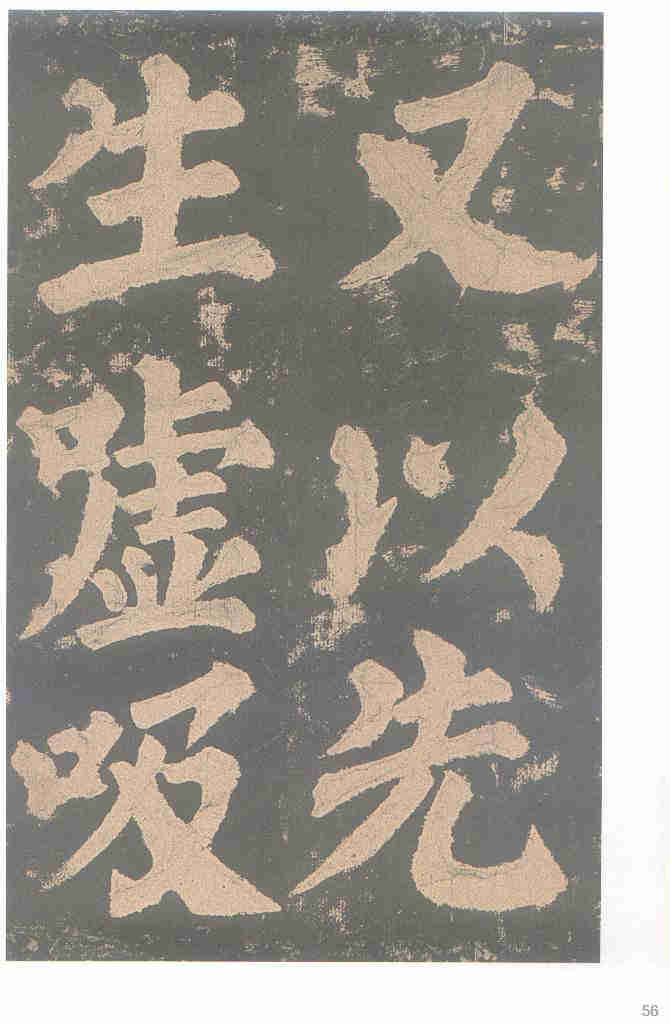 又以先
生噓吸
56